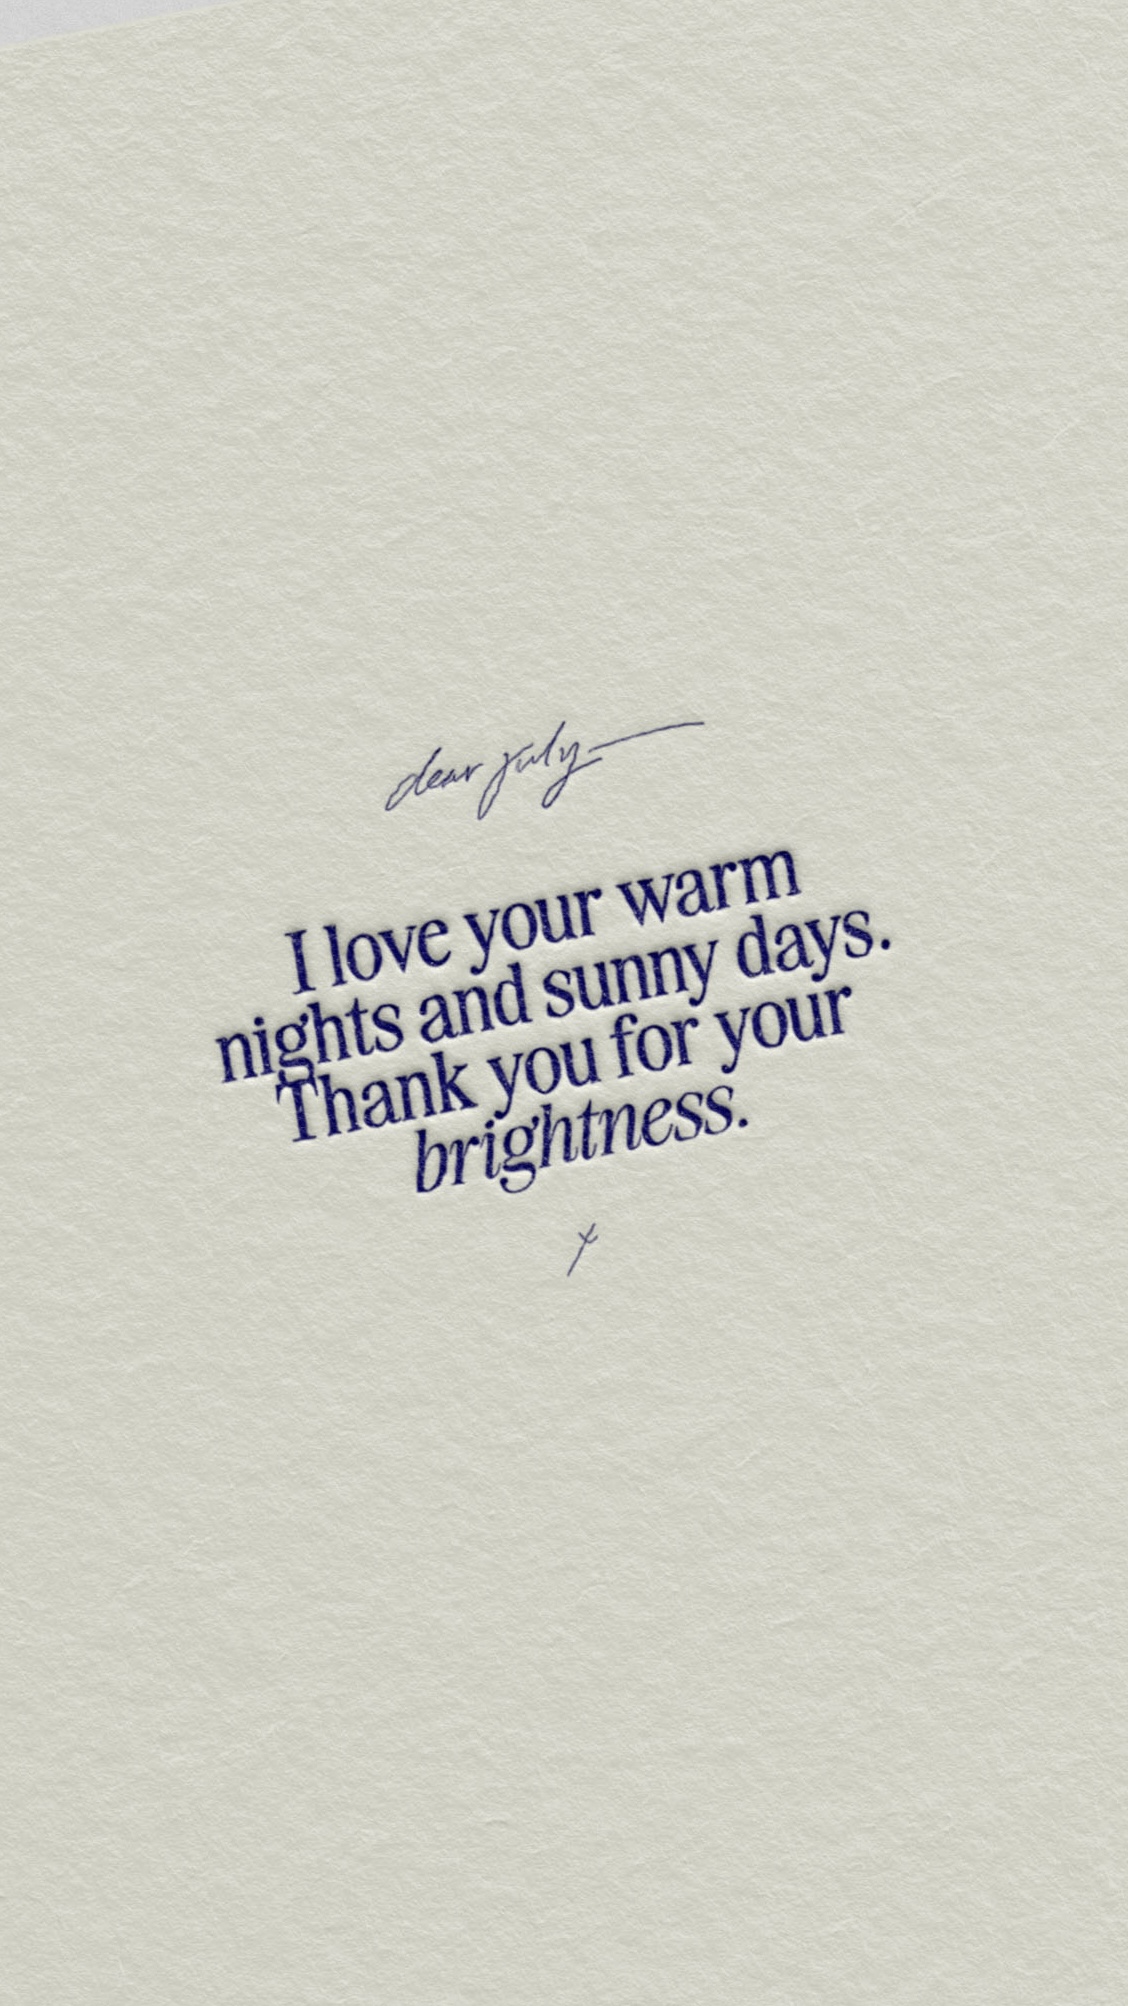 dear july
I love your warm
nights and sunny days.
Thank you for your
brightness.
x